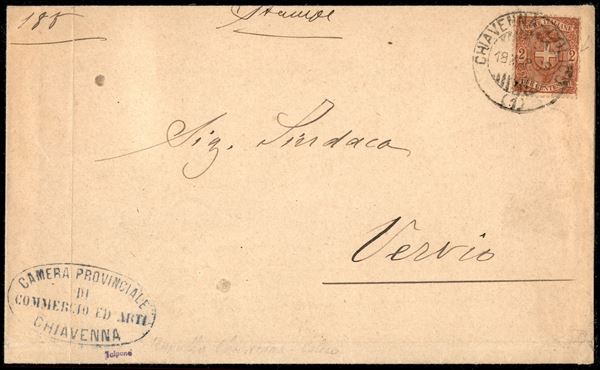 188 Stampe
CHIAVENNA
(1)
2 2
Sig. Sindaco
Vervio
CAMERA PROVINCIALE
DI
COMMERCIO ED ARTI
CHIAVENNA